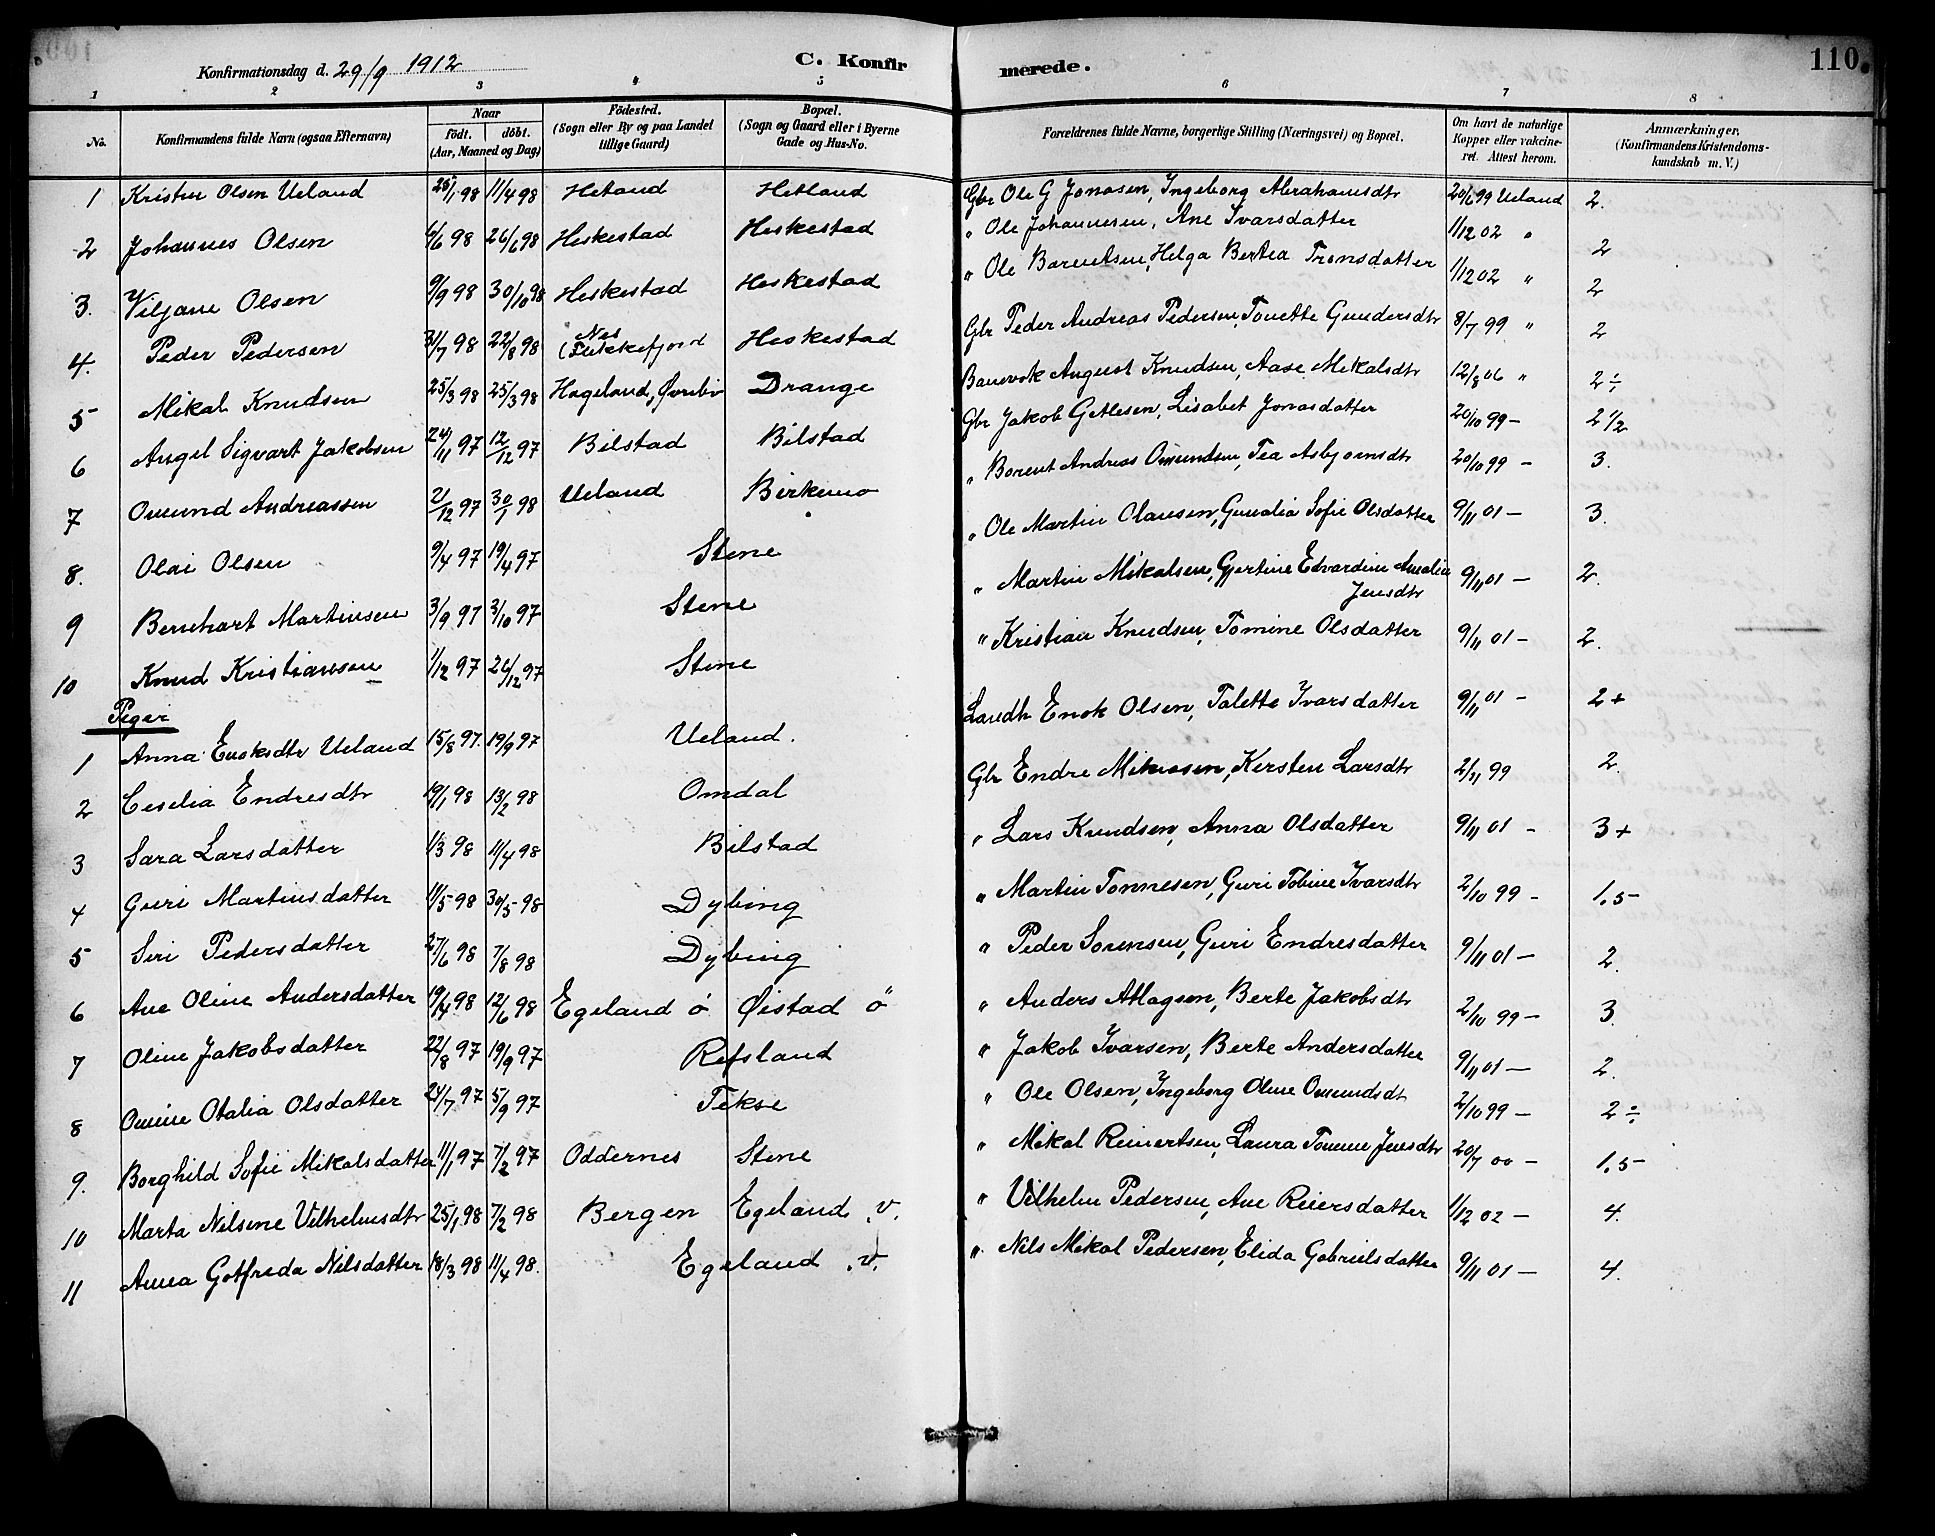 Konfirmationsdag d. 29/9 1912 C. Konfirmerede. 110.
1 2 3 4 5 6 7 8
No. Konfirmandens fulde Navn (ogsaa Efternavn) Naar födt. döbt. (Aar, Maaned og Dag) Födested. (Sogn eller By og paa Landet tillige Gaard) Bopæl. (Sogn og Gaard eller i Byerne Gade og Hus-No. Forældrenes fulde Navne, borgerlige Stilling (Næringsvei) og Bopæl. Om havt de naturlige Kopper eller vakcineret. Attest herom. Anmærkninger. (Konfirmandens Kristendomskundskab m. V.)
1 Kristen Olsen Ueland 25/1 98 11/4 98 Hetland Hetland Gbr Ole G Jonasen, Ingeborg Abrahamsdtr 20/6 99 Ueland 2.
2 Johannes Olsen 6/6 98 26/6 98 Heskestad Heskestad " Ole Johannesen, Ane Ivarsdatter 1/12 02 " 2
3. Viljane Olsen 9/9 98 30/10 98 Heskestad Heskestad " Ole Barentsen, Helga Bertea Tronsdatter 1/12 02 " 2
4. Peder Pedersen 31/7 98 22/8 98 Nes (Flekkefjord Heskestad Gbr Peder Andreas Pedersen, Tonette Gundersdtr 8/7 99 " 2
5 Mikal Knudsen 25/3 98 25/3 98 Hageland, Øvrebø Drange Banevok August Knudsen, Aase Mikalsdtr 12/8 06 " 2÷
6 Angel Sigvart Jakobsen 24/11 97 12/12 97 Bilstad Bilstad Gbr Jakob Getlesen, Lisabet Jonasdatter 20/10 99 – 2 1/2
7 Omund Andreassen 21/12 97 30/1 98 Ueland Birkemo " Borent Andreas Omundsen, Tea Asbjornsdtr 20/10 99 – 3.
8. Olai Olsen 9/4 97 19/4 97 Stene " Ole Martin Olausen, Gunalia Sofie Olsdatter 9/11 01 – 3.
9 Bernhart Martinsen 3/9 97 3/10 97 Stene " Martin Mikalsen, Gjertine Edvardine Amalia Jensdtr 9/11 01 – 2.
10 Knud Kristiansen 1/12 97 26/12 97 Stene " Kristian Knudsen, Tomine Olsdatter 9/11 01 – 2.
Piger
1 Anna Enoksdtr Ueland 15/8 97. 19/9 97 Ueland. Landh Enok Olsen, Talette Ivarsdatter 9/11 01 – 2+
2 Ceselia Endresdtr 19/1 98 13/2 98 Omdal Gbr Endre Mikasen, Kersten Larsdtr 2/11 99 2.
3 Sara Larsdatter 1/3 98 11/4 98 Bilstad " Lars Knudsen, Anna Olsdatter 9/11 01 – 3+
4 Guri Martinsdatter 11/5 98 30/5 98 Dybing " Martin Tonnesen, Guri Tobine Ivarsdtr 2/10 99 – 1.5
5 Siri Pedersdatter 27/6 98 7/8 98 Dybing " Peder Sorensen, Guri Endresdatter 9/11 01 – 2.
6 Ane Oline Andersdatter 19/4 98 12/6 98 Egeland ö Øistad ö " Anders Atlagsen, Berte Jakobsdtr 2/10 99 – 3.
7 Oline Jakobsdatter 22/8 97 19/9 97 Refsland " Jakob Ivarsen, Berte Andersdatter 9/11 01 – 2.
8 Omine Otalia Olsdatter 24/7 97 5/9 97 Tekse " Ole Olsen, Ingeborg Oline Omundsdt 2/10 99 – 2÷
9. Borghild Sofie Mikalsdatter 11/1 97 7/2 97 Oddernes Stene " Mikal Reinertsen, Laura Tomine Jensdtr 20/7 00 – 1.5
10 Marta Nilsine Vilhelmsdtr 25/1 98 7/2 98 Bergen Egeland .v. " Vilhelm Pedersen, Ane Reiersdatter 1/12 02 – 4.
11 Anna Gotfreda Nilsdatter 18/3 98 11/4 98. Egeland .v. " Nils Mikal Pedersen, Elida Gabrielsdatter 9/11 01 – 4.